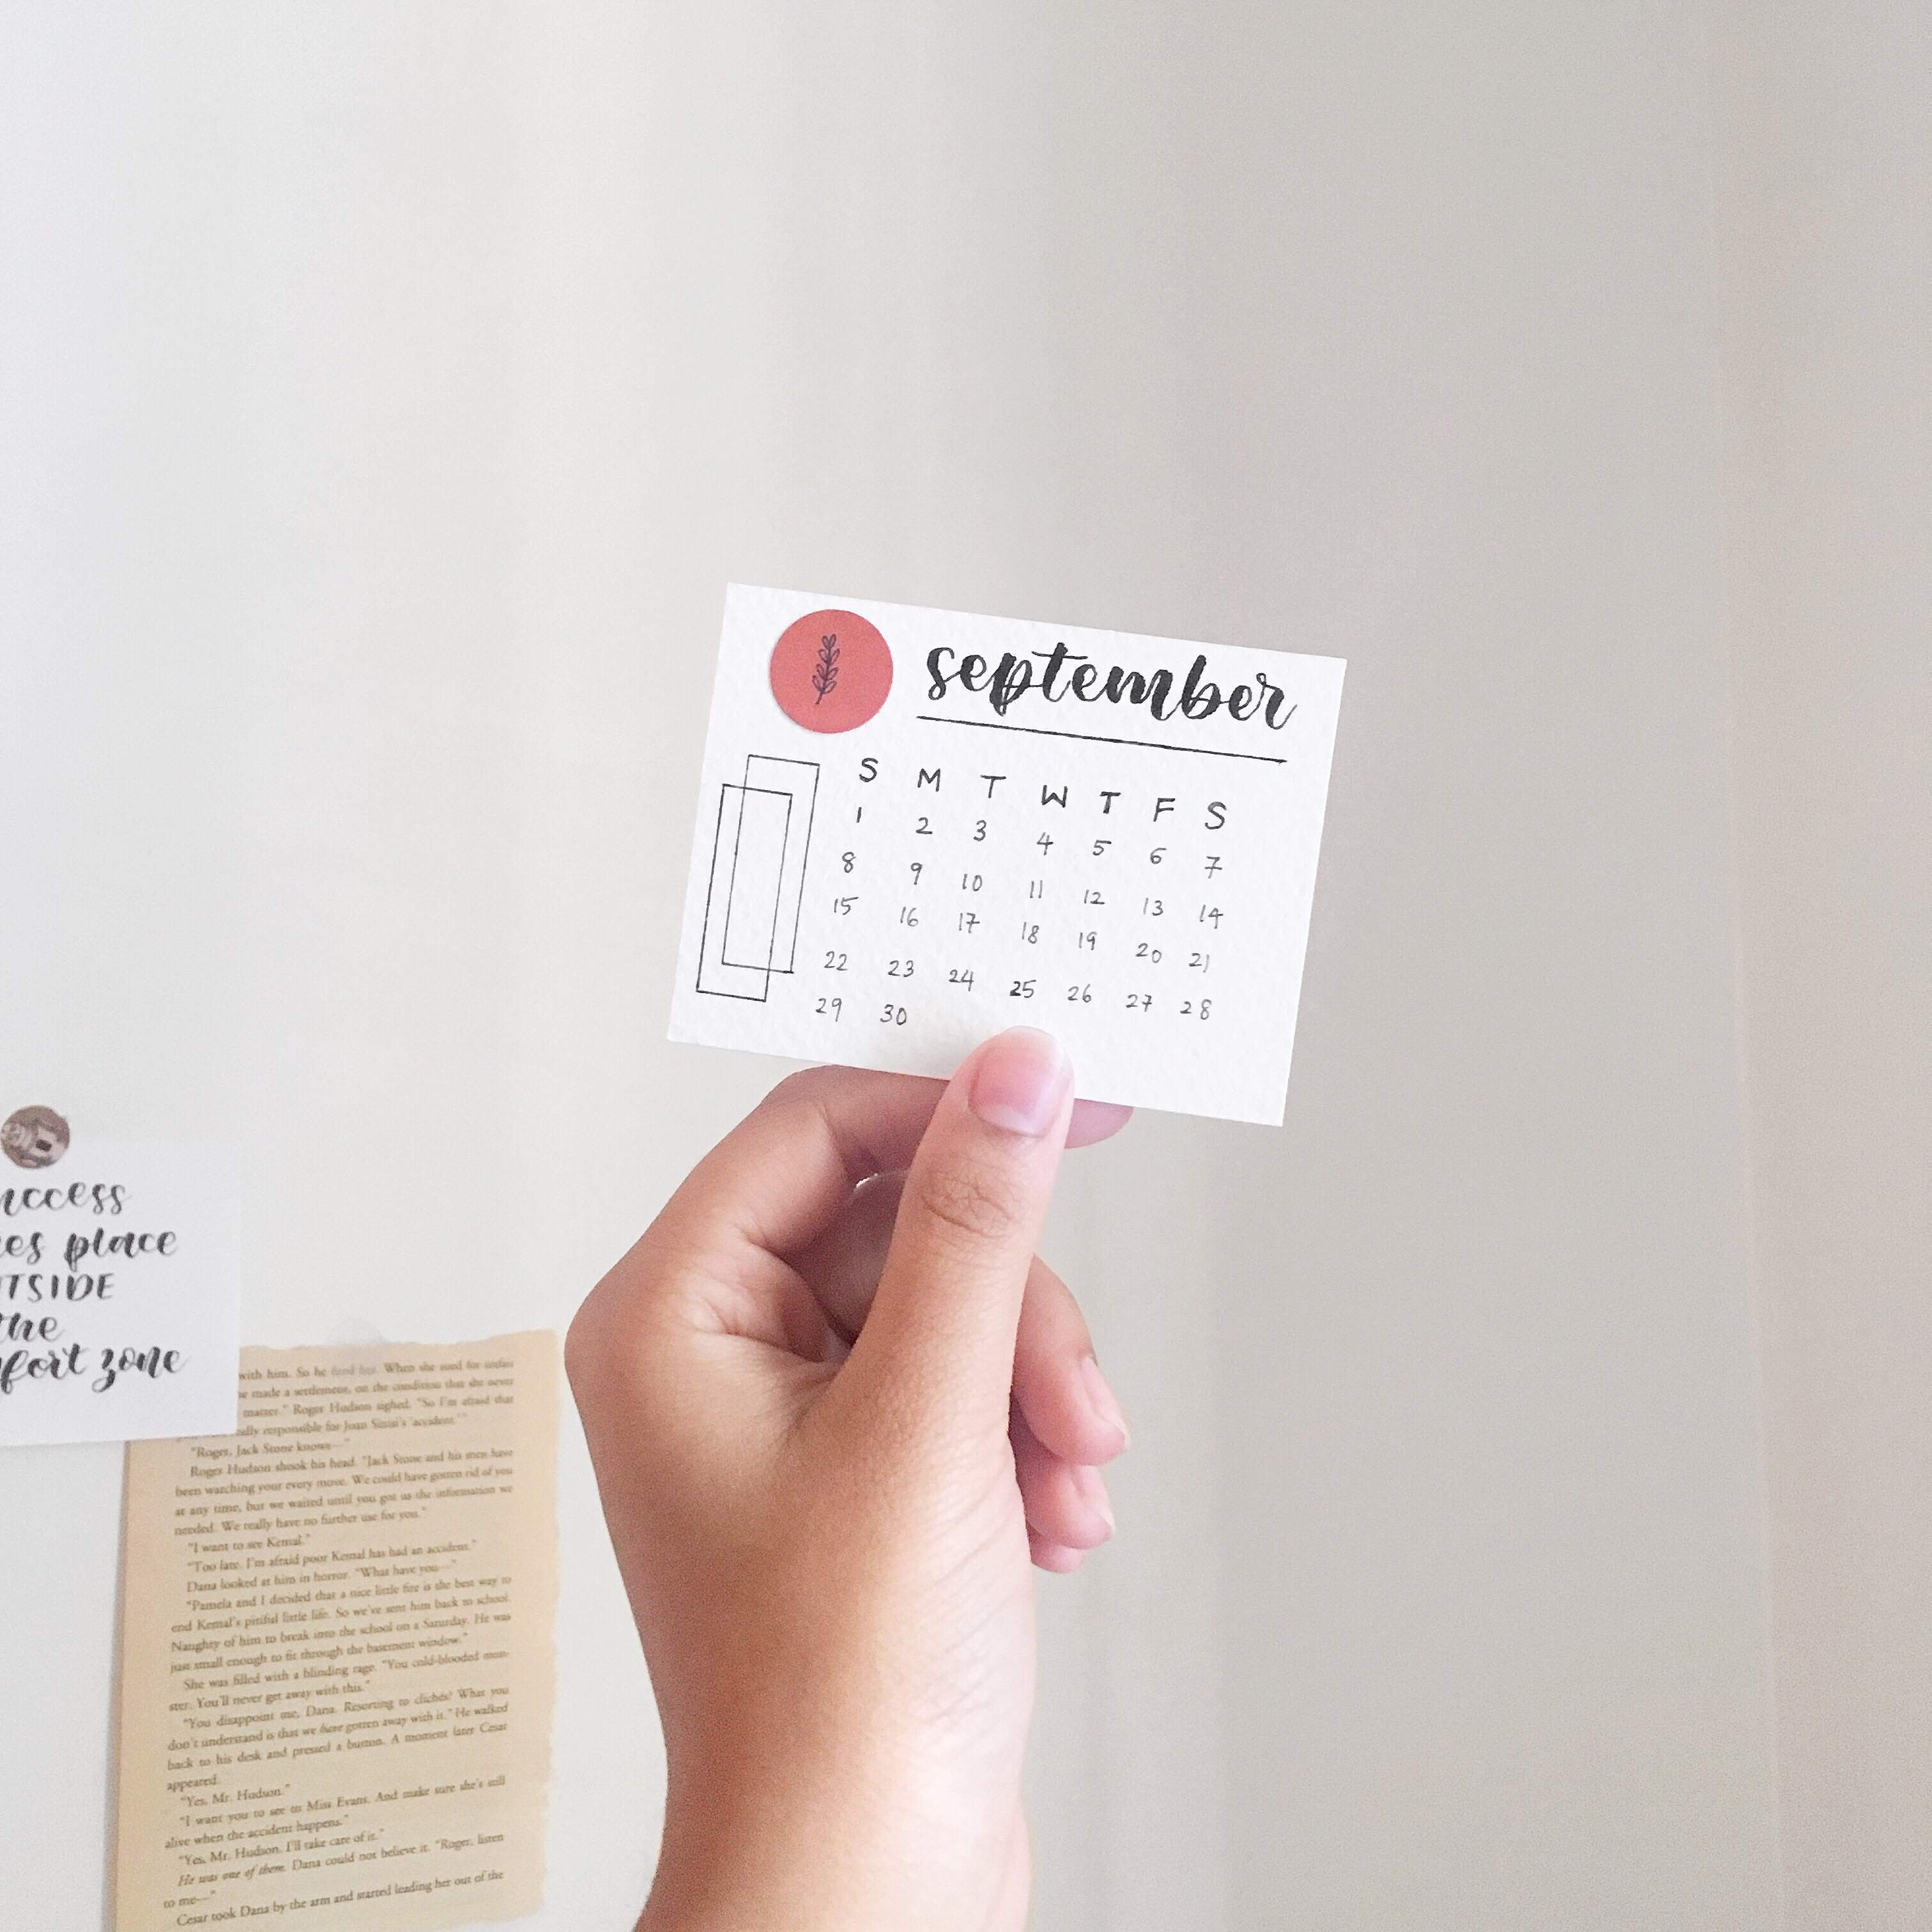 september
S M T W T F S
1 2 3 4 5 6 7
8 9 10 11 12 13 14
15 16 17 18 19 20 21
22 23 24 25 26 27 28
29 30
uccess
es place
TSIDE
the
fort zone
with him. So he fired her. When she sued for unfair
made a settlement, on the condition that she never
matter." Roger Hudson sighed. "So I'm afraid that
ally responsible for Joan Sinisi's 'accident.'"
"Roger, Jack Stone knows—"
Roger Hudson shook his head. "Jack Stone and his men have
been watching your every move. We could have gotten rid of you
at any time, but we waited until you got us the information we
needed. We really have no further use for you."
"I want to see Kemal."
"Too late. I'm afraid poor Kemal has had an accident."
Dana looked at him in horror. "What have you—"
"Pamela and I decided that a nice little fire is the best way to
end Kemal's pitiful little life. So we've sent him back to school.
Naughty of him to break into the school on a Saturday. He was
just small enough to fit through the basement window."
She was filled with a blinding rage. "You cold-blooded mon-
ster. You'll never get away with this."
"You disappoint me, Dana. Resorting to clichés? What you
don't understand is that we have gotten away with it." He walked
back to his desk and pressed a button. A moment later Cesar
appeared.
"Yes, Mr. Hudson."
"I want you to see to Miss Evans. And make sure she's still
alive when the accident happens."
"Yes, Mr. Hudson. I'll take care of it."
He was one of them. Dana could not believe it. "Roger, listen
to me—"
Cesar took Dana by the arm and started leading her out of the